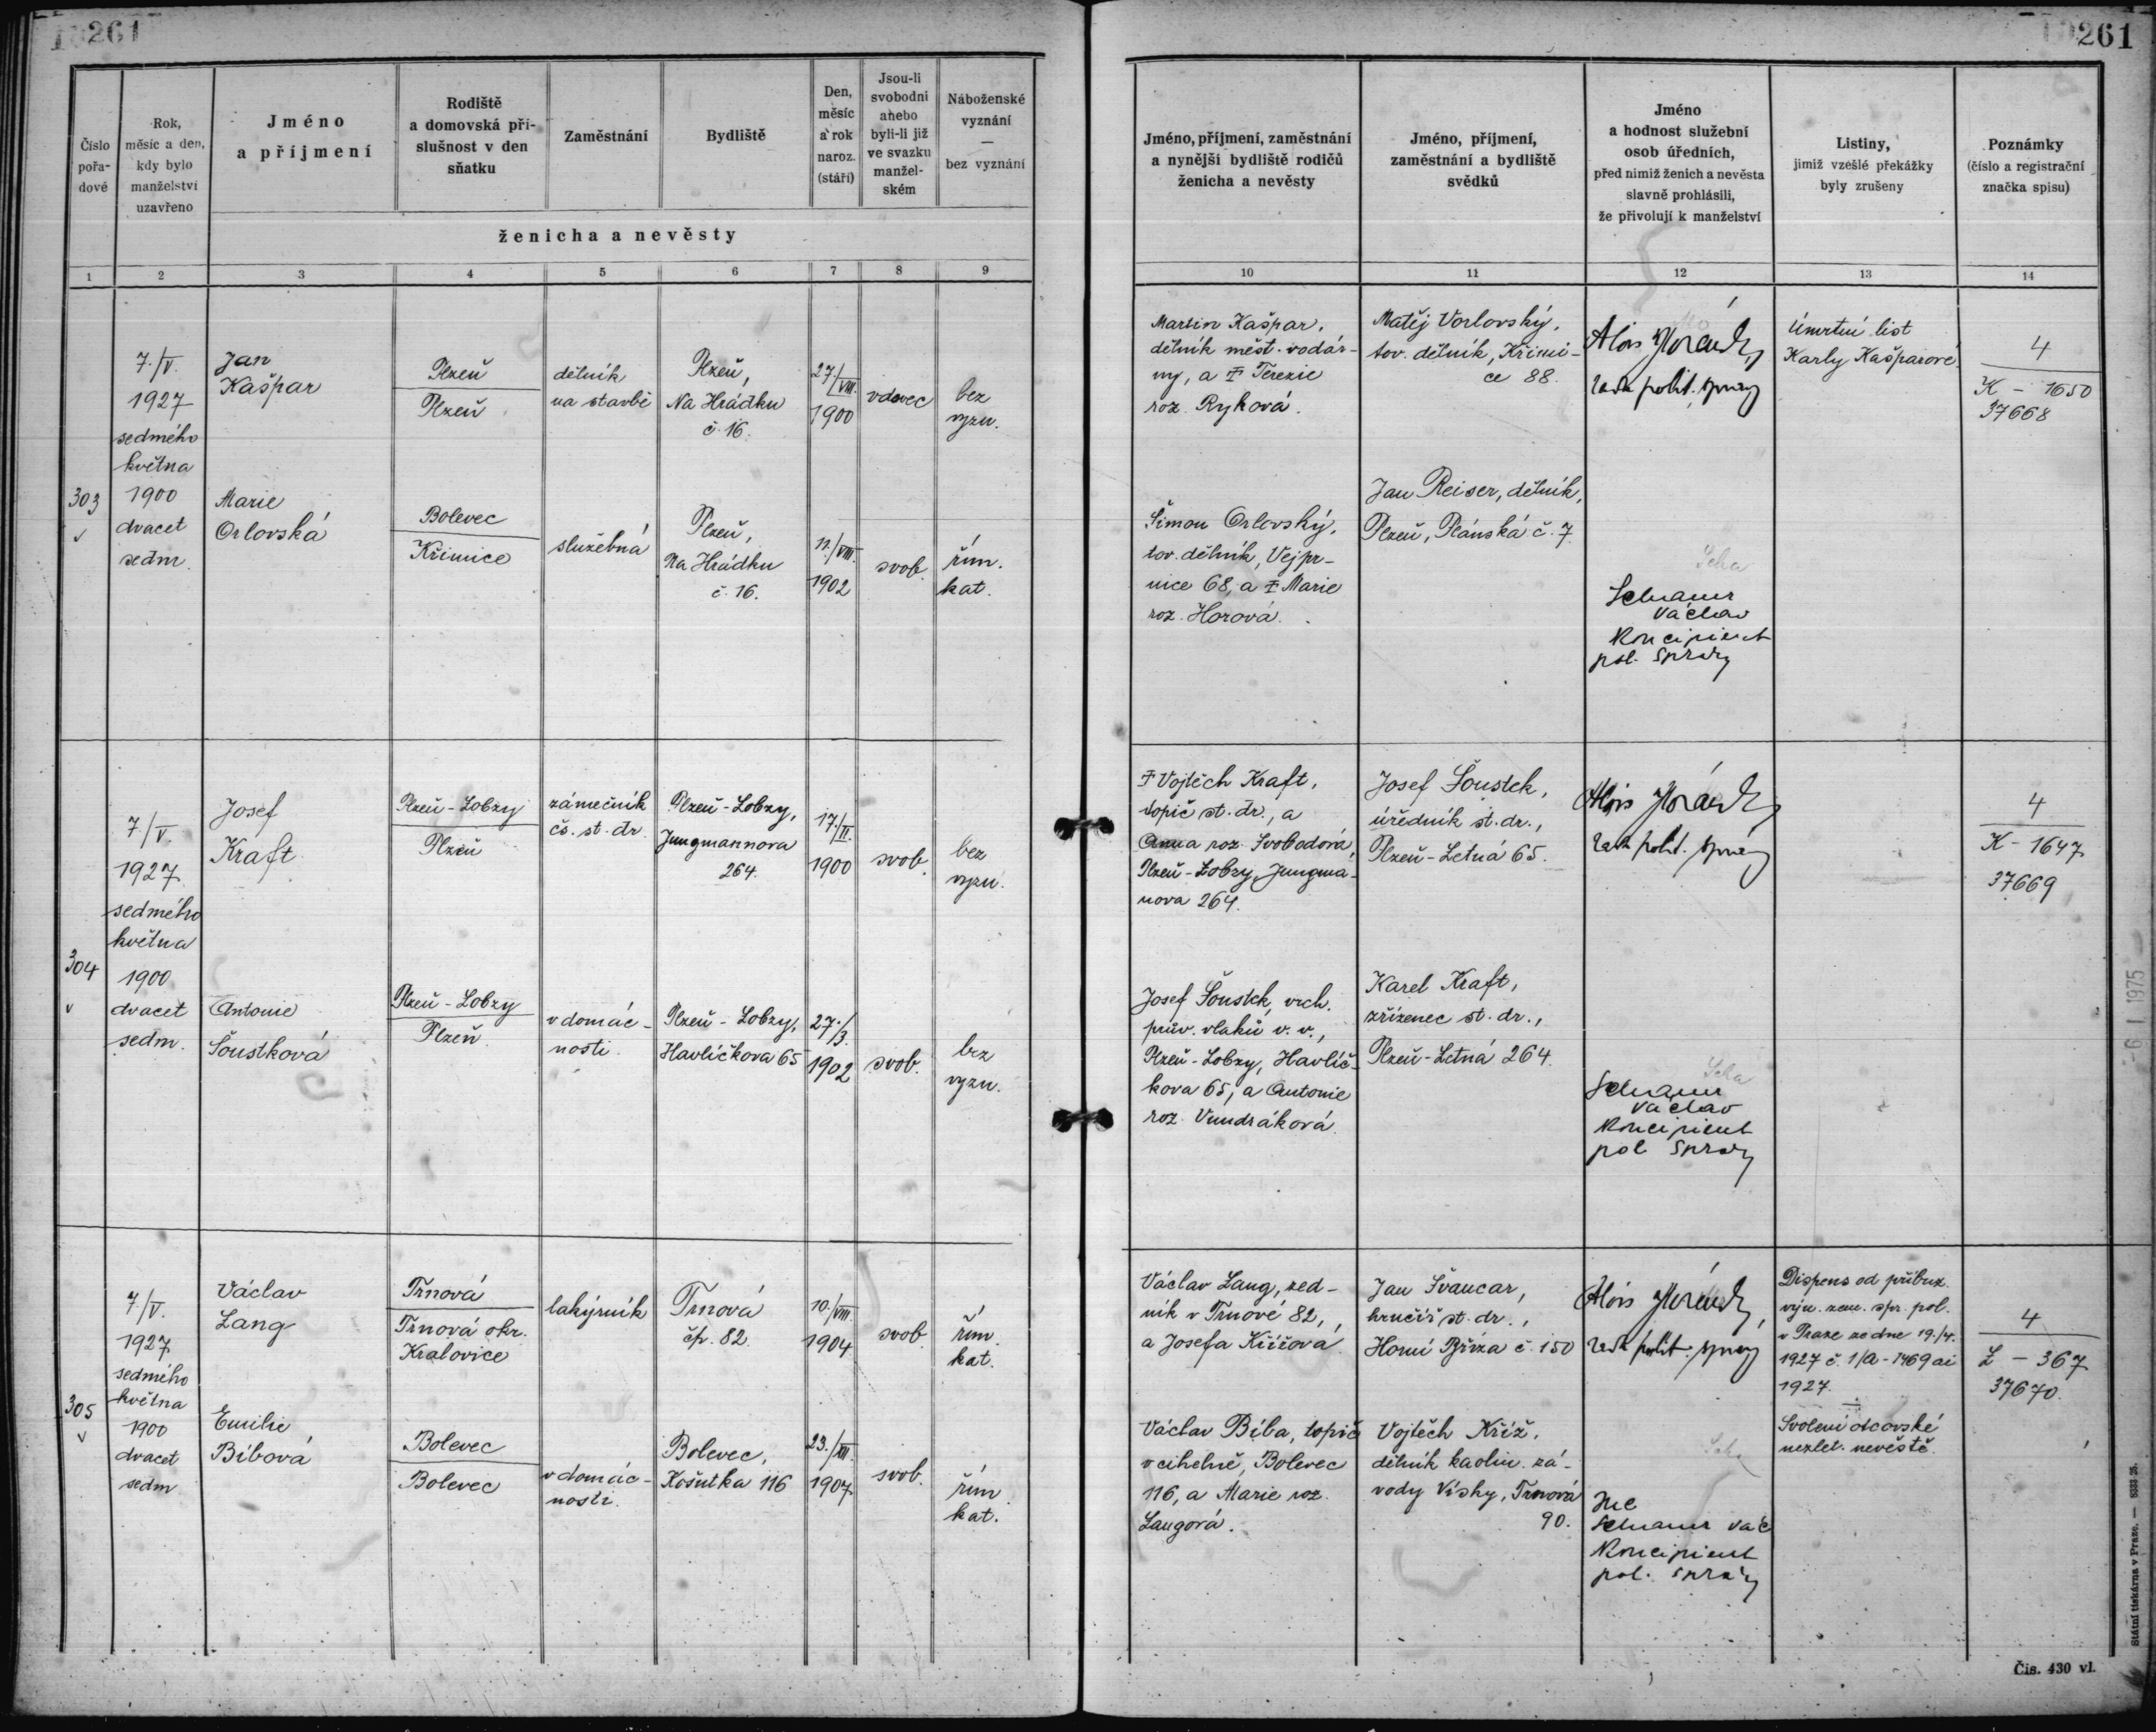 261
261
Číslo pořadové
Rok, měsíc a den, kdy bylo manželství uzavřeno
Jméno a příjmení
Rodiště a domovská příslušnost v den sňatku
Zaměstnání
Bydliště
Den, měsíc a rok naroz. (stáří)
Jsou-li svobodni anebo byli-li již ve svazku manželském
Náboženské vyznání — bez vyznání
ženicha a nevěsty
Jméno, příjmení, zaměstnání a nynější bydliště rodičů ženicha a nevěsty
Jméno, příjmení, zaměstnání a bydliště svědků
Jméno a hodnost služební osob úředních, před nimiž ženich a nevěsta slavně prohlásili, že přivolují k manželství
Listiny, jimiž vzešlé překážky byly zrušeny
Poznámky (číslo a registrační značka spisu)
1 2 3 4 5 6 7 8 9 10 11 12 13 14
303
7./V.
1927
sedmého
května
1900
dvacet
sedm.
Jan
Kašpar
Plzeň
Plzeň
dělník
na stavbě
Plzeň,
Na Hrádku
č. 16.
27./VIII.
1900
vdovec
bez
vyzn.
Marie
Orlovská
Bolevec
Křimice
služebná
Plzeň,
Na Hrádku
č. 16.
11./VIII.
1902
svob.
řím.
kat.
Martin Kašpar,
dělník měst. vodár-
ny, a ‡ Terezie
roz. Ryková.
Šimon Orlovský,
tov. dělník, Vejpr-
nice 68, a ‡ Marie
roz. Horová.
Matěj Vorlovský,
tov. dělník, Křimi-
ce 88.
Jan Reiser, dělník,
Plzeň, Plánská č. 7.
Alois
rada polit. správy
Václav
Koncipient
pol. správy
Úmrtní list
Karly Kašparové.
4
K - 1650
37668
304
7/V.
1927
sedmého
května
1900
dvacet
sedm.
Josef
Kraft
Plzeň-Lobzy
Plzeň
zámečník
čs. st. dr.
Plzeň-Lobzy,
Jungmannova
264.
17./II.
1900
svob.
bez
vyzn.
Antonie
Šoustková
Plzeň-Lobzy
Plzeň
v domác-
nosti.
Plzeň-Lobzy,
Havlíčkova 65
27./3.
1902
svob.
bez
vyzn.
‡ Vojtěch Kraft,
topič st. dr., a
Anna roz. Svobodová,
Plzeň-Lobzy, Jungma-
nova 264.
Josef Šoustek, vrch.
prův. vlaků v. v.,
Plzeň-Lobzy, Havlíč-
kova 65, a Antonie
roz. Vundráková.
Josef Šoustek,
úředník st. dr.,
Plzeň-Letná 65.
Karel Kraft,
zřízenec st. dr.,
Plzeň-Letná 264.
Alois
rada polit. správy
Václav
Koncipient
pol správy
4
K - 1647
37669
-6 I 1975-
305
7/V.
1927
sedmého
května
1900
dvacet
sedm
Václav
Lang
Trnová
Trnová okr.
Kralovice
lakýrník
Trnová
čp. 82.
10./VIII.
1904
svob.
řím.
kat.
Emilie
Bíbová
Bolevec
Bolevec
v domác-
nosti.
Bolevec,
Košutka 116
23./XII.
1907
svob.
řím.
kat.
Václav Lang, zed-
ník v Trnové 82,
a Josefa Křížová
Václav Bíba, topič
v cihelně, Bolevec
116, a Marie roz.
Langová.
Jan Švancar,
hrnčíř st. dr.,
Horní Bříza č. 150
Vojtěch Kříž,
dělník kaolin. zá-
vody Vísky, Trnová
90.
Alois
rada polit. správy
Koncipient
pol. správy
Dispens od příbuz.
výn. zem. spr. pol.
v Praze ze dne 19./4.
1927 č. 1/A-1469 ai
1927.
Svolení otcovské
nezlet. nevěstě.
4
L - 367
37670.
Státní tiskárna v Praze. — 8333 26.
Čís. 430 vl.